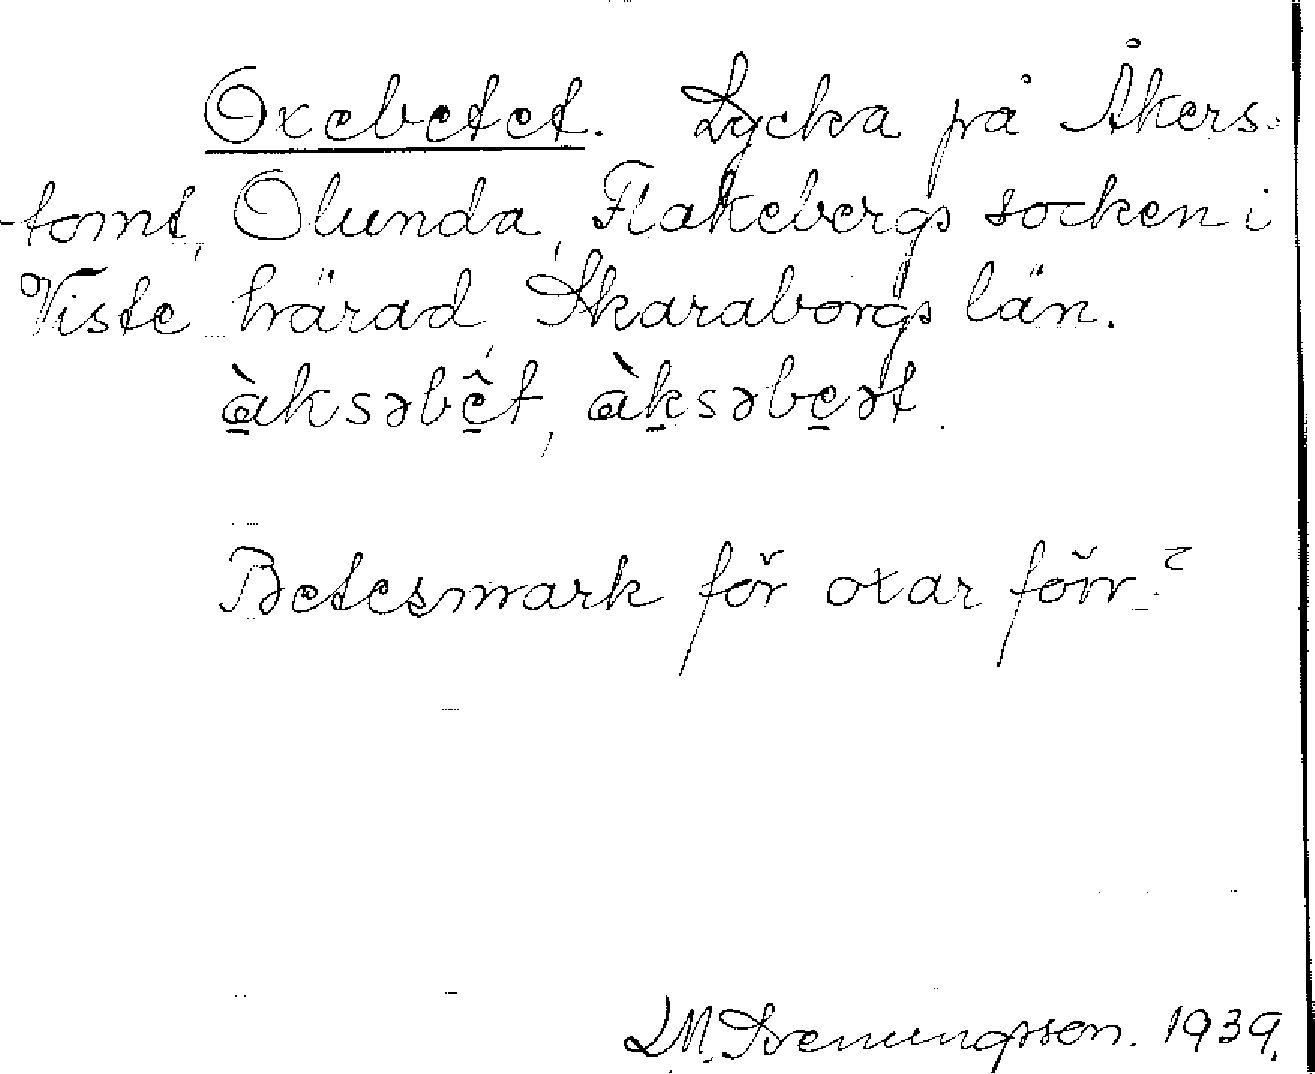 Oxebetet. Lycka på Åkers-
-tomt, Olunda, Flakebergs socken i
Viste härad, Skaraborgs län.
àksəbêt, àksəbeət.
Betesmark för oxar förr?
L.M. Svenungsson. 1939.